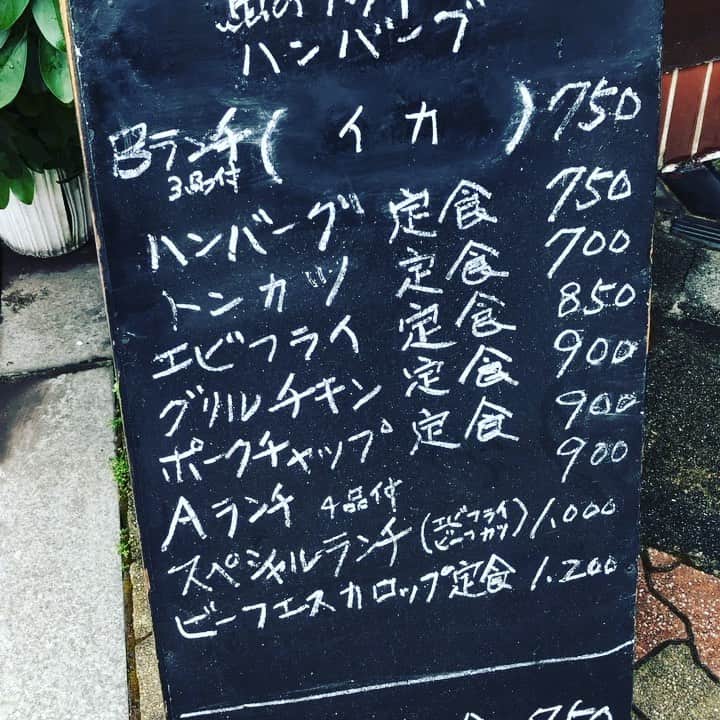 ハンバーグ
Bランチ (イカ) 750
3品付
ハンバーグ 定食 750
トンカツ 定食 700
エビフライ 定食 850
グリルチキン 定食 900
ポークチャップ 定食 900
Aランチ 4品付 900
スペシャルランチ (エビフライ ビーフカツ) 1.000
ビーフエスカロップ定食 1.200
750